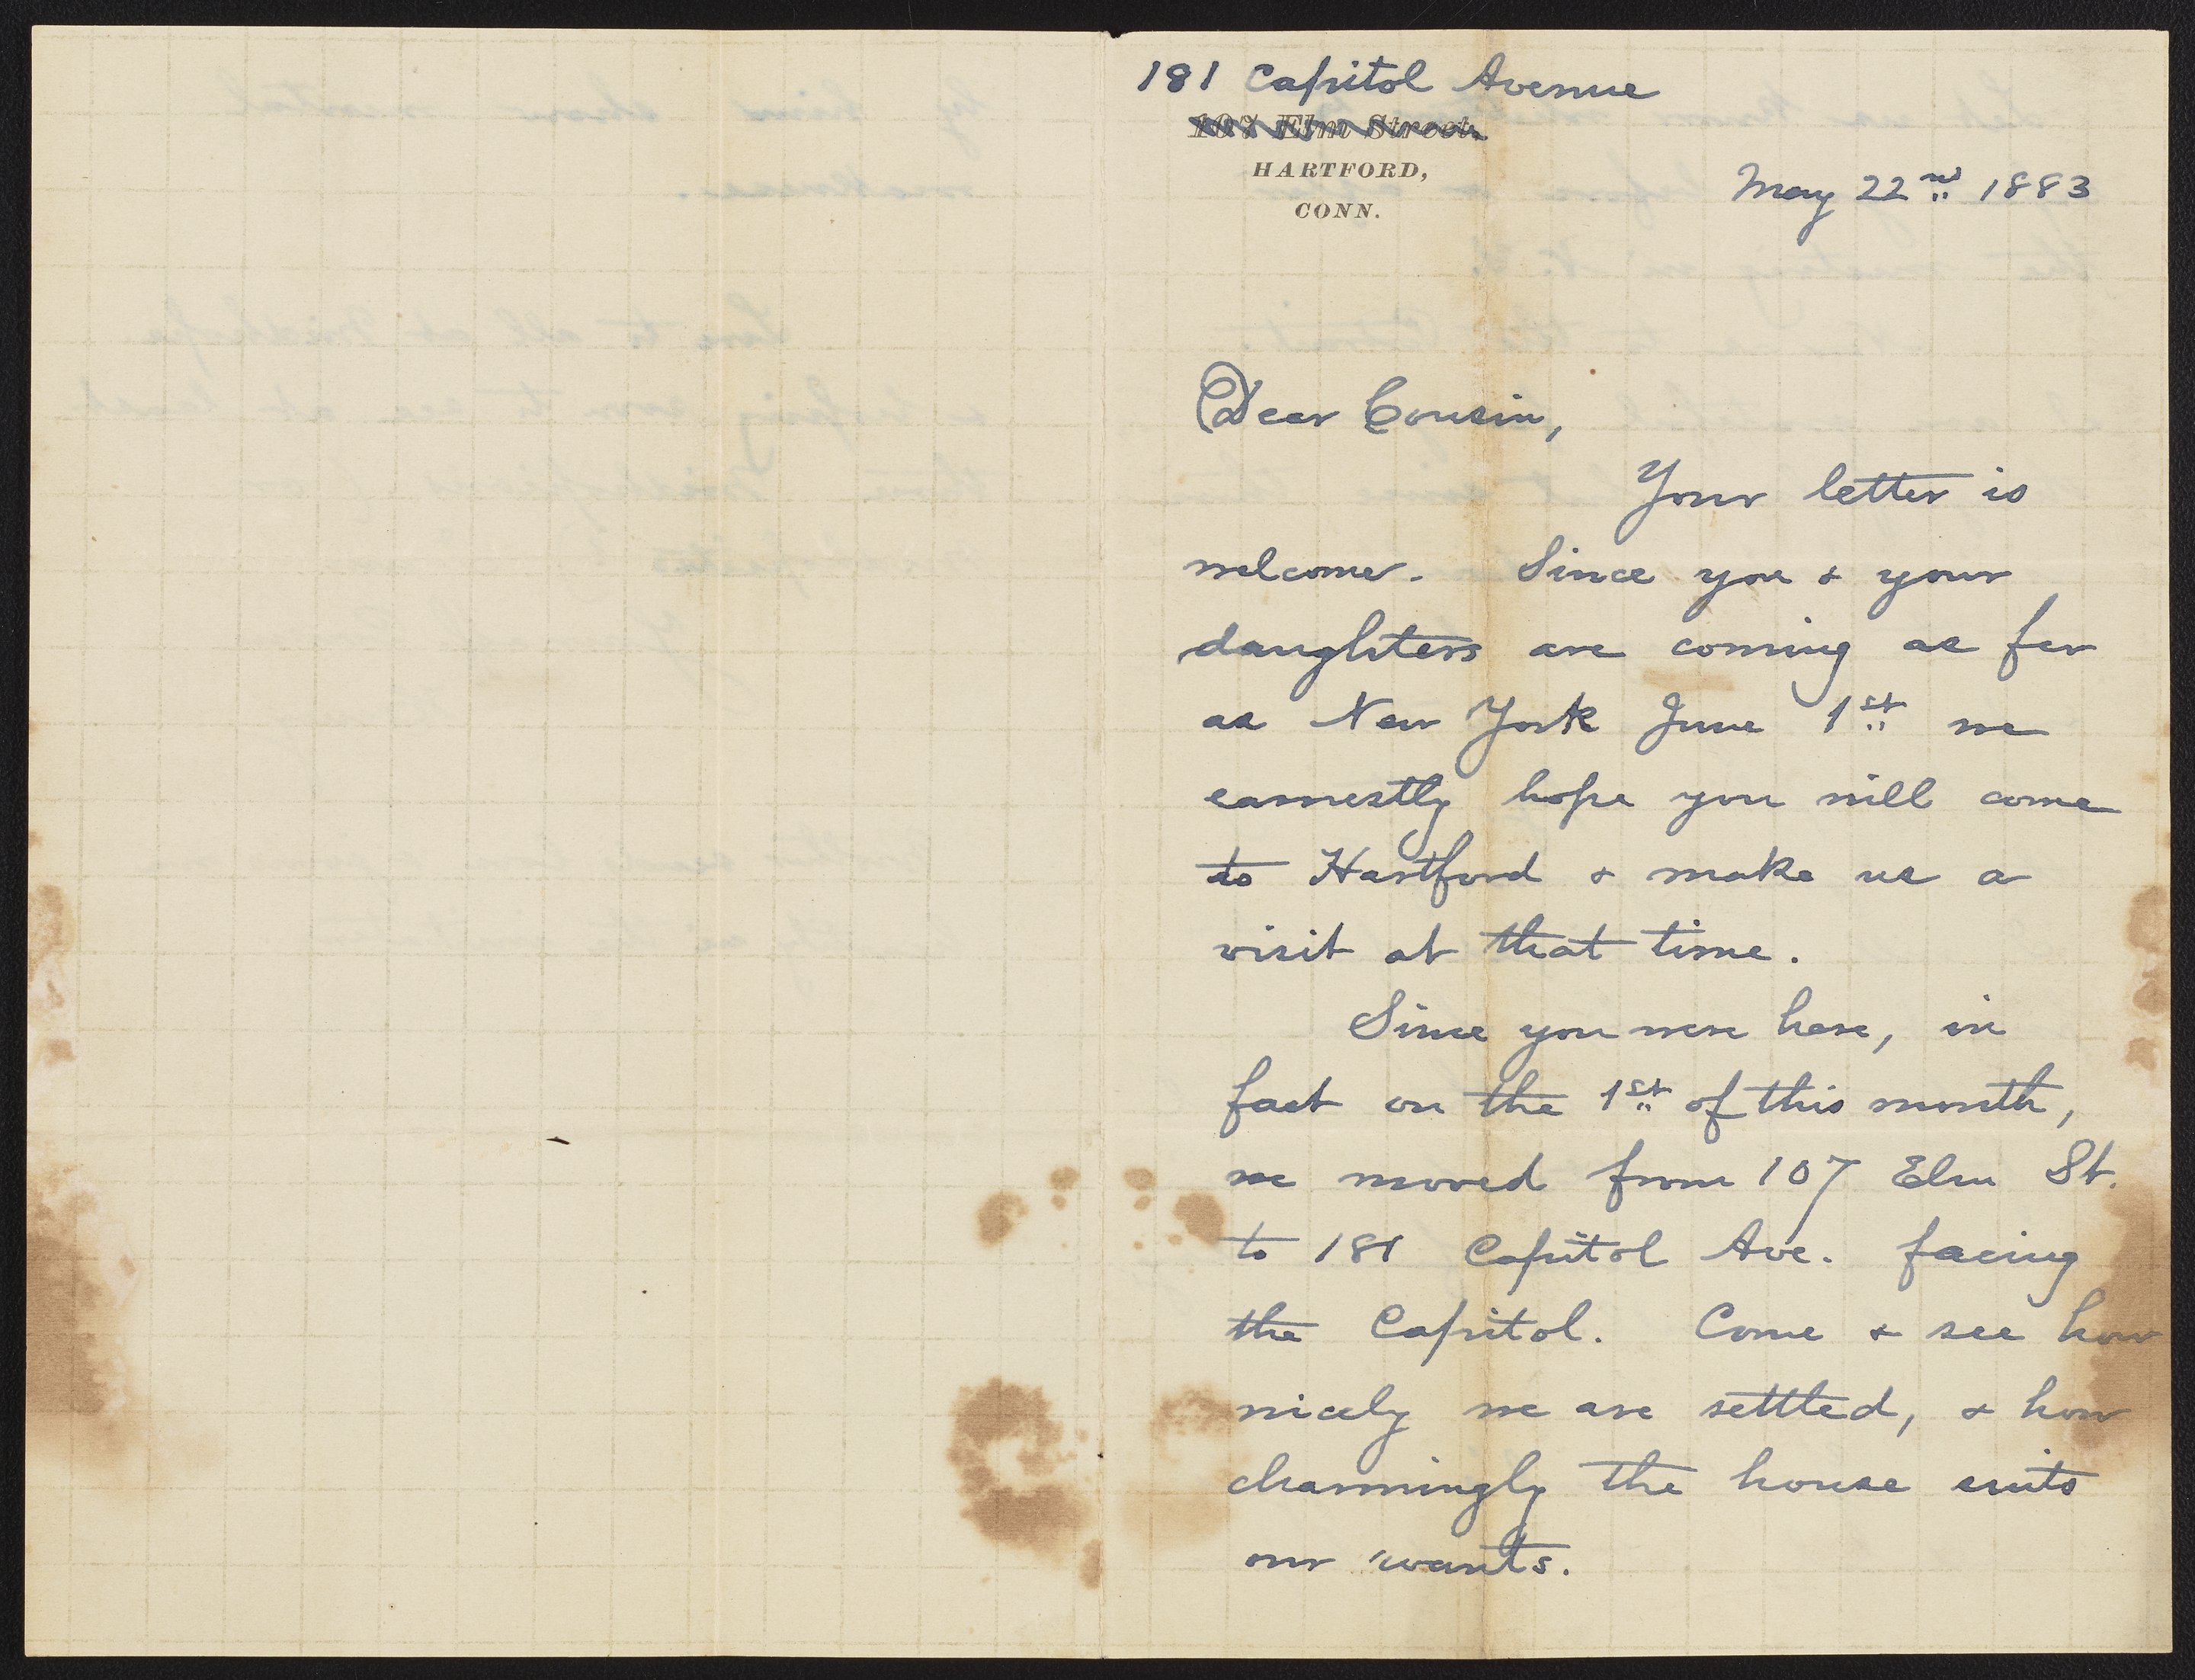 181 Capitol Avenue
107 Elm Street,
HARTFORD,
CONN.
May 22nd 1883
Dear Cousin,
Your letter is
welcome. Since you & your
daughters are coming as far
as New York June 1st we
earnestly hope you will come
to Hartford & make us a
visit at that time.
Since you were here, in
fact on the 1st of this month,
we moved from 107 Elm St.
to 181 Capitol Ave. facing
the Capitol. Come & see how
nicely we are settled, & how
charmingly the house suits
our wants.